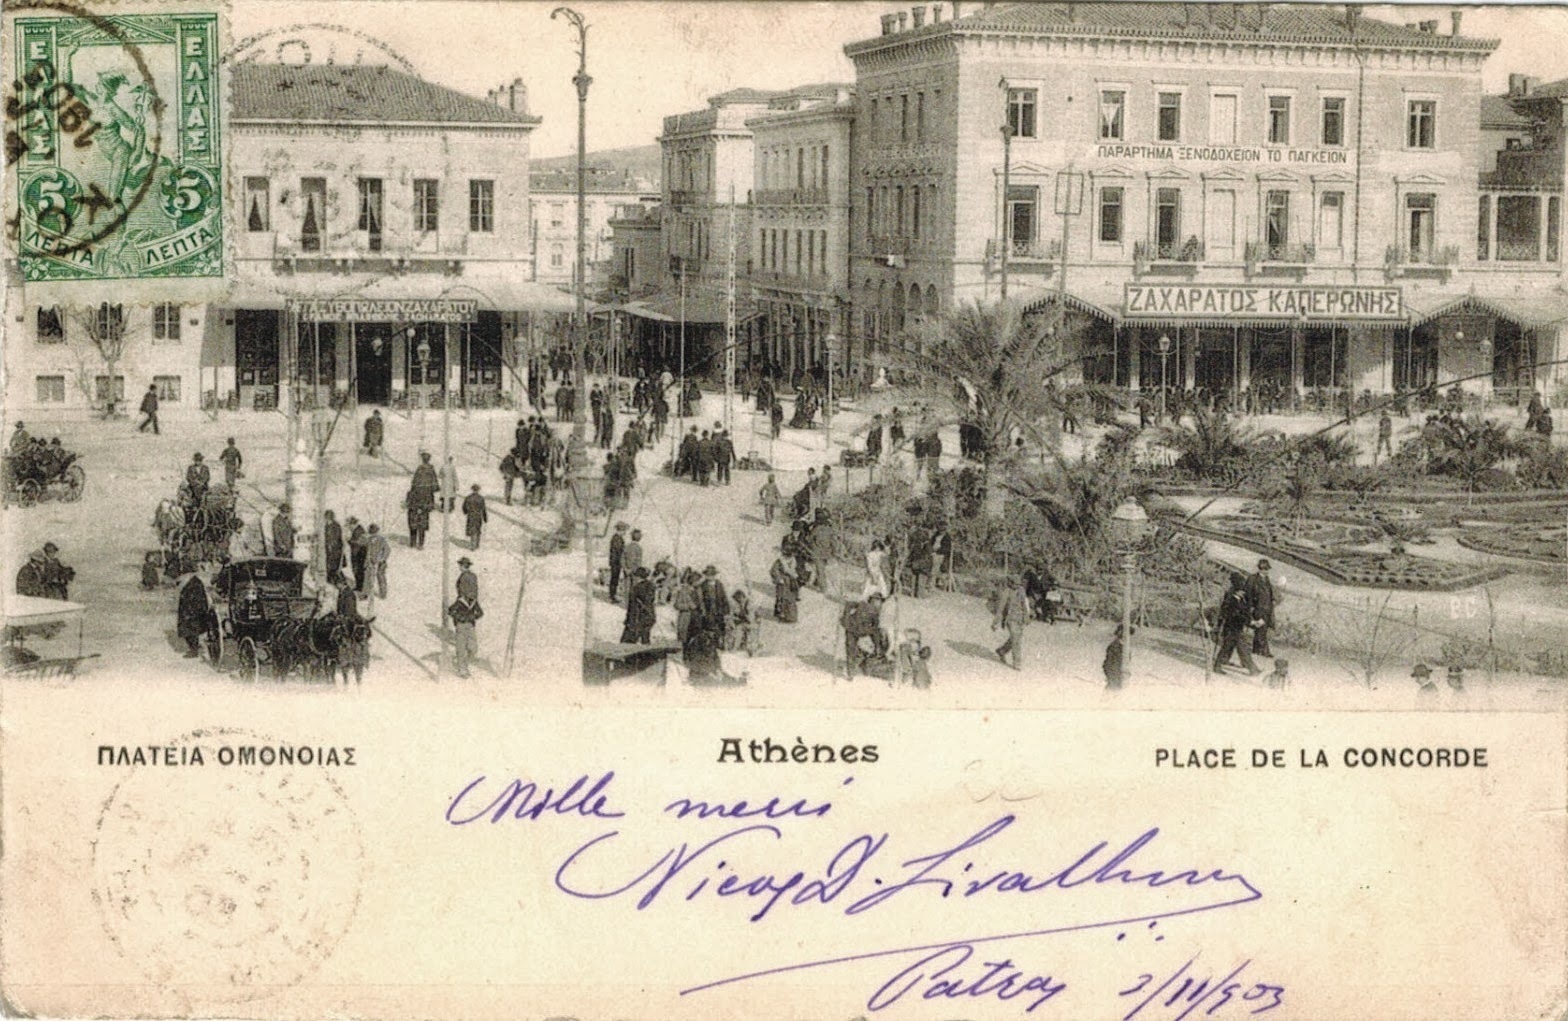 ΕΛΛΑΣ
ΕΛΛΑΣ
5 5
ΛΕΠΤΑ ΛΕΠΤΑ
ΠΑΡΑΡΤΗΜΑ ΞΕΝΟΔΟΧΕΙΟΝ ΤΟ ΠΑΓΚΕΙΟΝ
ΖΑΧΑΡΑΤΟΣ ΚΑΠΕΡΩΝΗΣ
ΠΛΑΤΕΙΑ ΟΜΟΝΟΙΑΣ
Athènes
PLACE DE LA CONCORDE
Mille merci
Patras 2/11/903